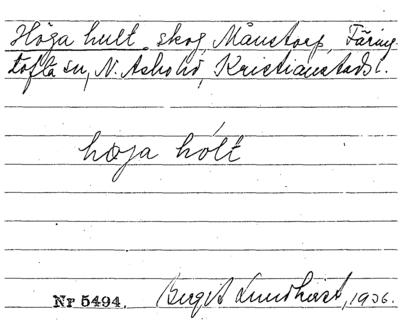 Höga hult skog, Månstorp, Färing-
tofta sn, N. Åsbo hd, Kristianstads l.
høja hólt
Nr 5494. Birgit Lundkvist, 1936.